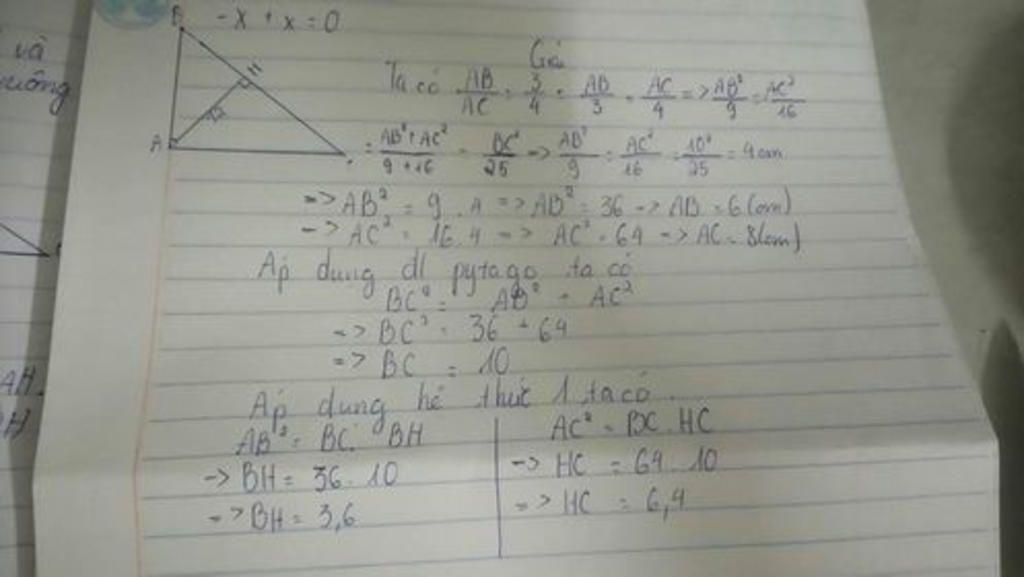 và
vuông
B - x + x = 0
H
A
Giải
Ta có AB/AC = 3/4 = AB/3 = AC/4 => AB²/9 = AC²/16
= AB² + AC²/9 + 16 = BC²/25 => AB²/9 = AC²/16 = 10²/25 = 4 cm
=> AB² = 9 . 4 => AB² = 36 -> AB = 6 (cm)
-> AC² = 16 . 4 => AC² = 64 -> AC = 8 (cm)
Áp dung dl pytago ta có
BC² = AB² + AC²
=> BC² = 36 + 64
=> BC = 10
AH.
Áp dung hê thức 1 ta có.
H
AB² = BC . BH
-> BH = 36 . 10
=> BH = 3,6
AC² = BC . HC
-> HC = 64 . 10
=> HC = 6,4